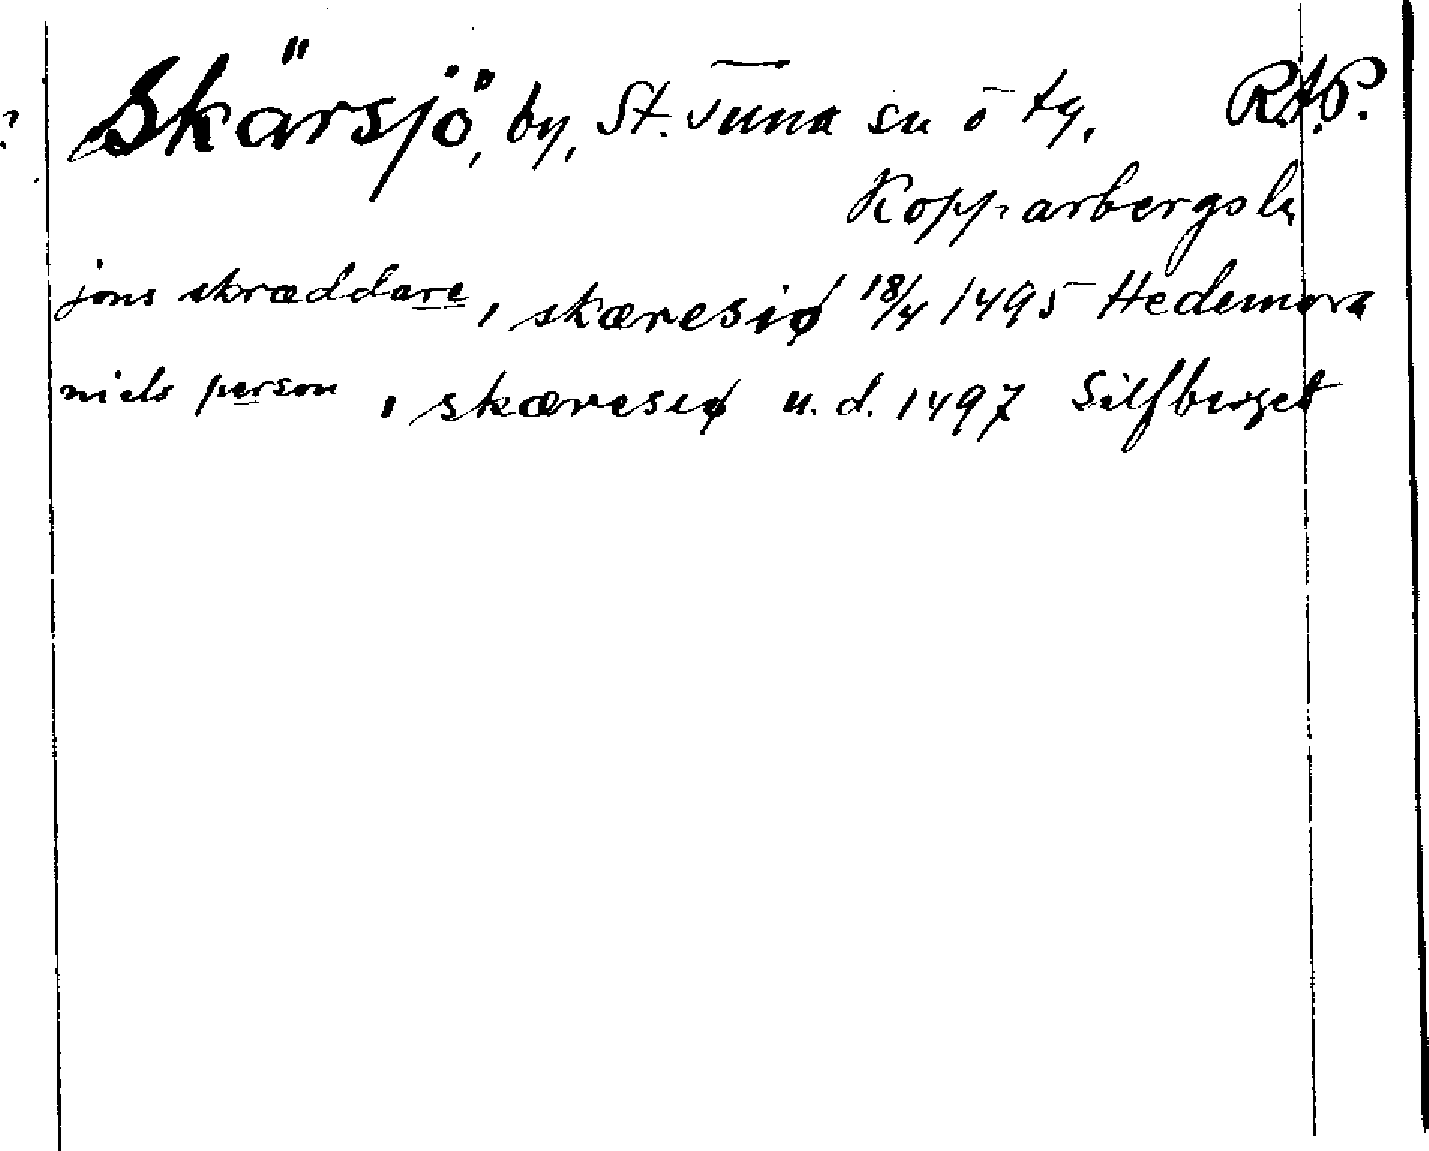 Skärsjö, by, St. Tuna sn o tg, R.A.P.
Kopparbergs l.
jons skræddare, i skæresiø 18/4 1495 Hedemora
niels person, i skæresiø u.d. 1497 Silfberget